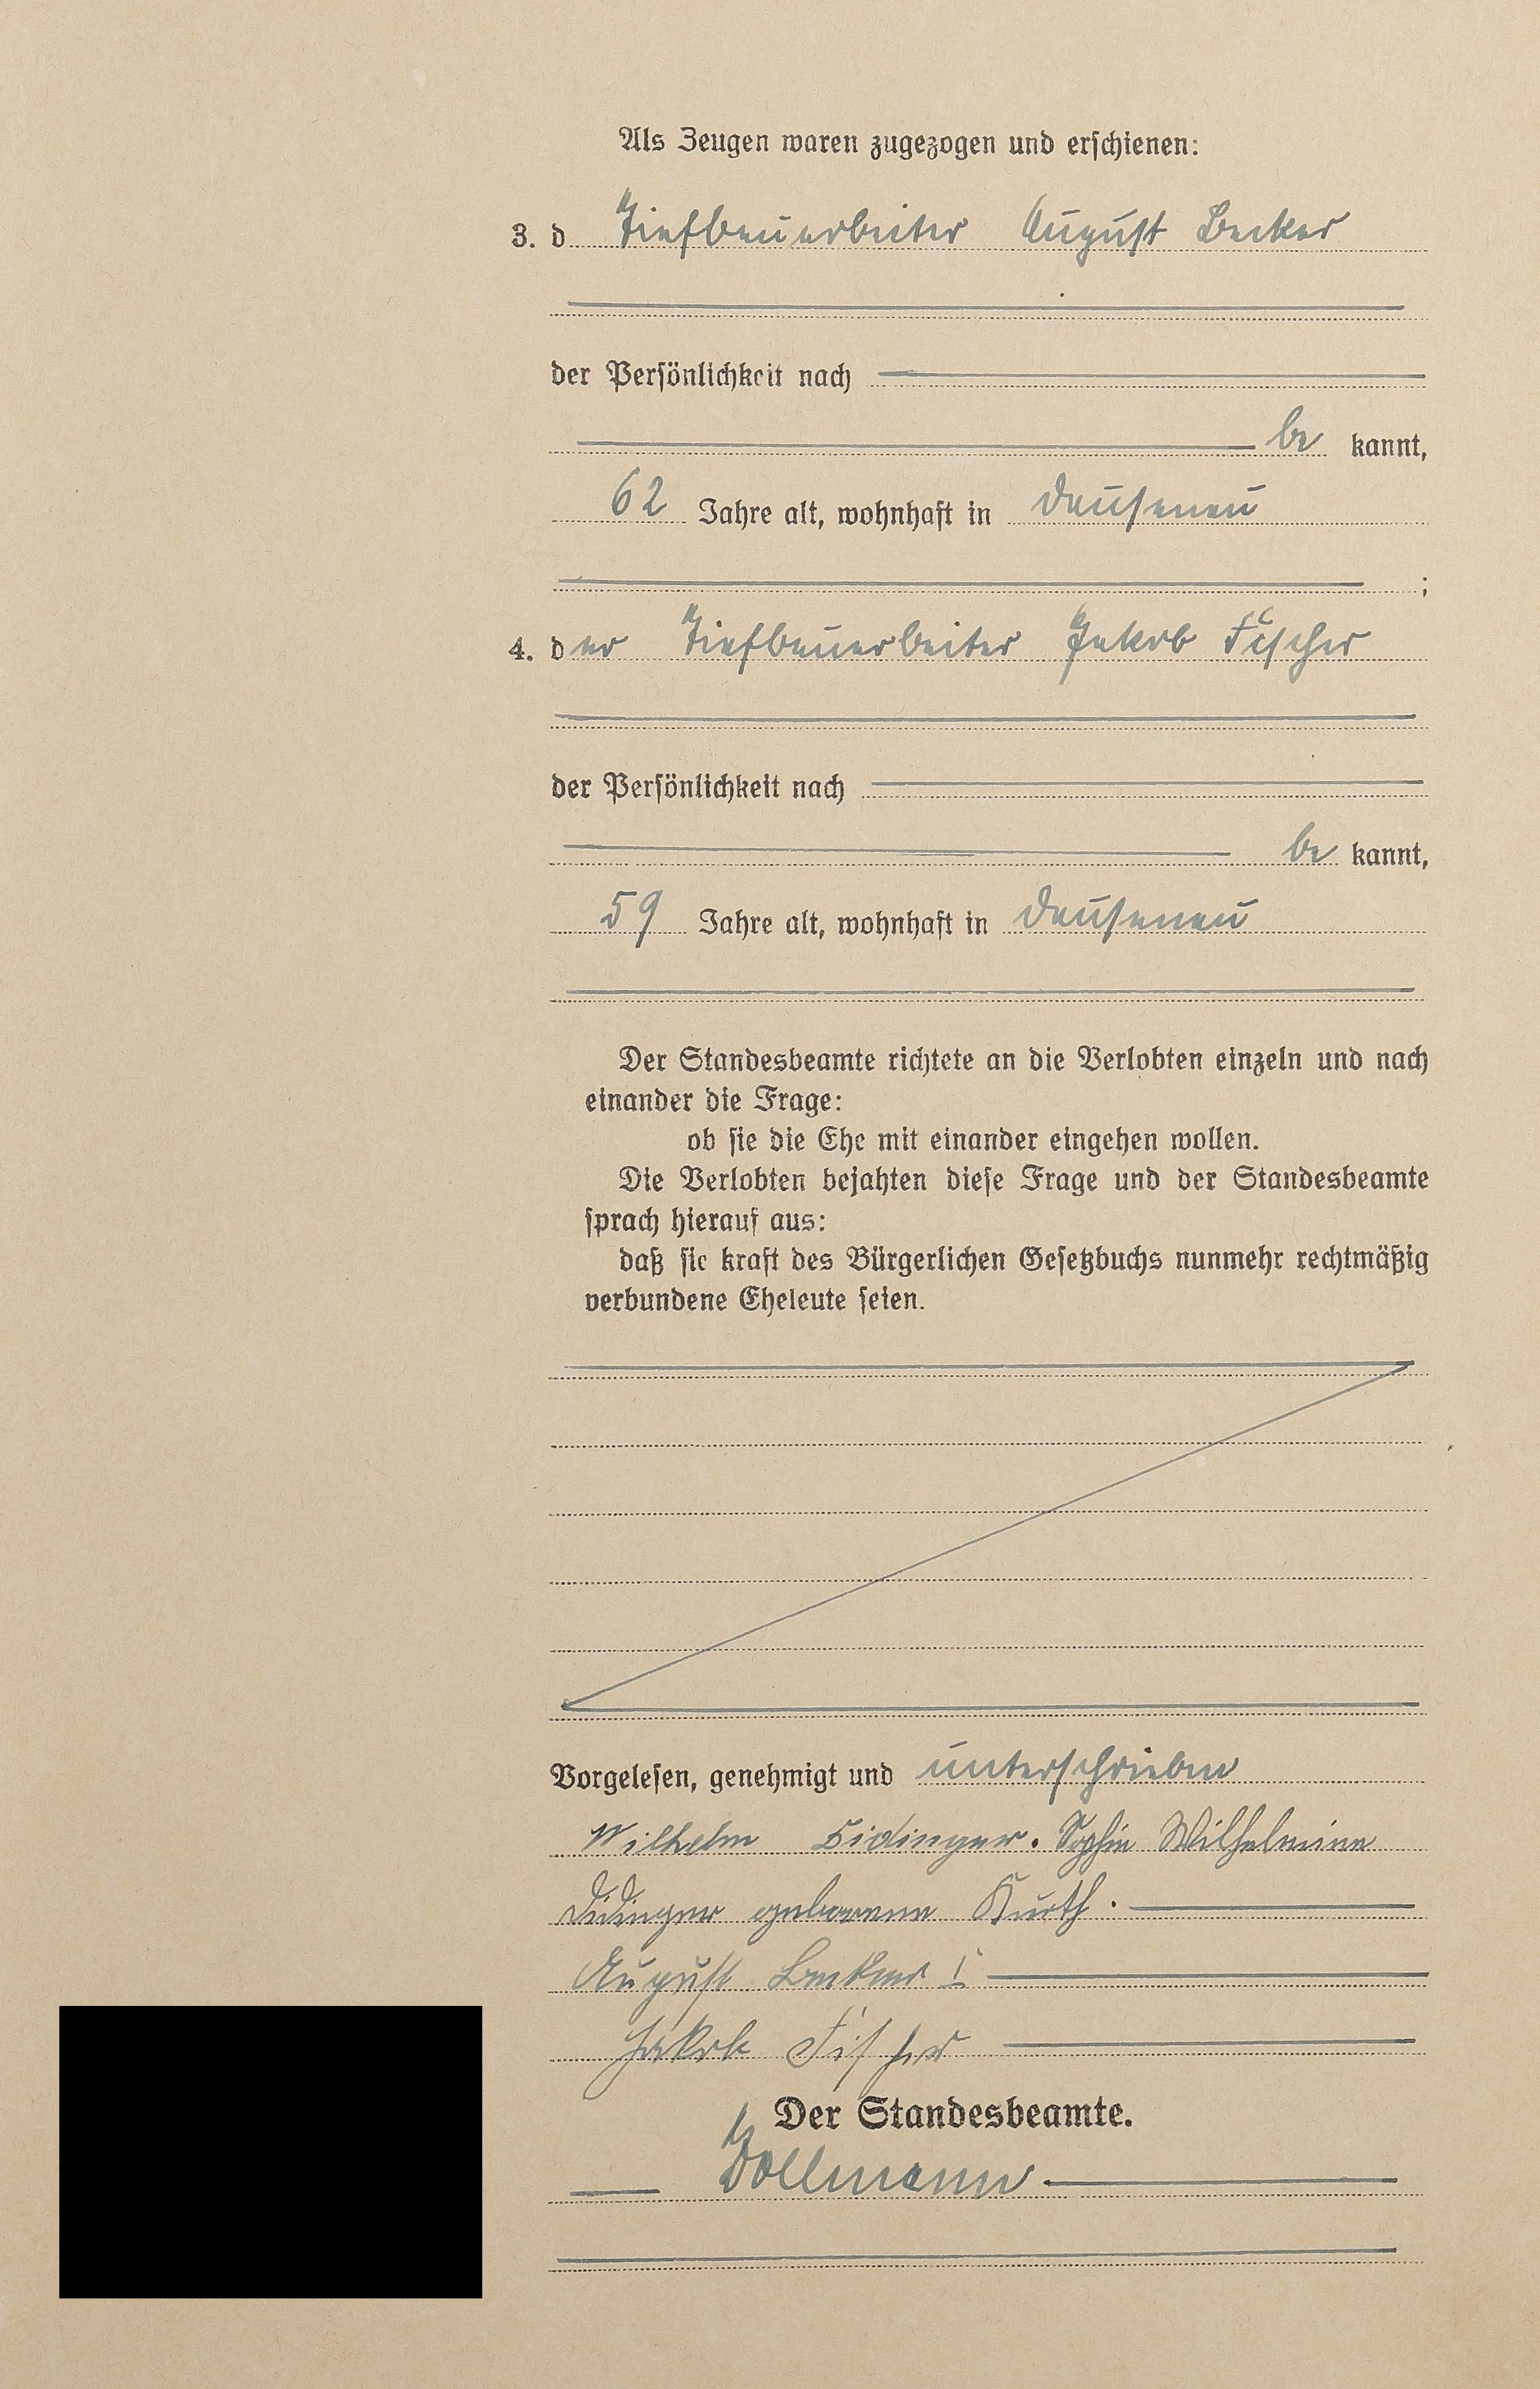 Als Zeugen waren zugezogen und erschienen:
3. d Tiefbauarbeiter August Becker
der Persönlichkeit nach
be kannt,
62 Jahre alt, wohnhaft in Dausenau
;
4. der Tiefbauarbeiter Jakob Fischer
der Persönlichkeit nach
be kannt,
59 Jahre alt, wohnhaft in Dausenau
Der Standesbeamte richtete an die Verlobten einzeln und nach
einander die Frage:
ob sie die Ehe mit einander eingehen wollen.
Die Verlobten bejahten diese Frage und der Standesbeamte
sprach hierauf aus:
daß sie kraft des Bürgerlichen Gesetzbuchs nunmehr rechtmäßig
verbundene Eheleute seien.
Vorgelesen, genehmigt und unterschrieben
Wilhelm Sidinger. Sophie Wilhelmine
geborene Kurth.
August Becker I
Jakob Fischer
Der Standesbeamte.
Döllmann